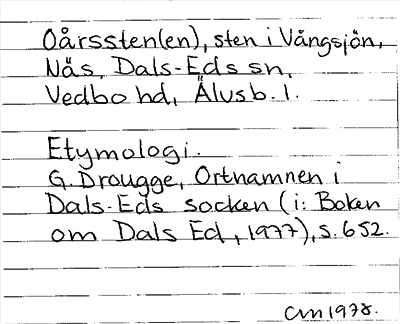 Oårssten(en), sten i Vångsjön,
Näs, Dals-Eds sn,
Vedbo hd, Älvsb. l.
Etymologi.
G. Drougge, Ortnamnen i
Dals-Eds socken (i: Boken
om Dals Ed, 1977), s. 652.
1978.